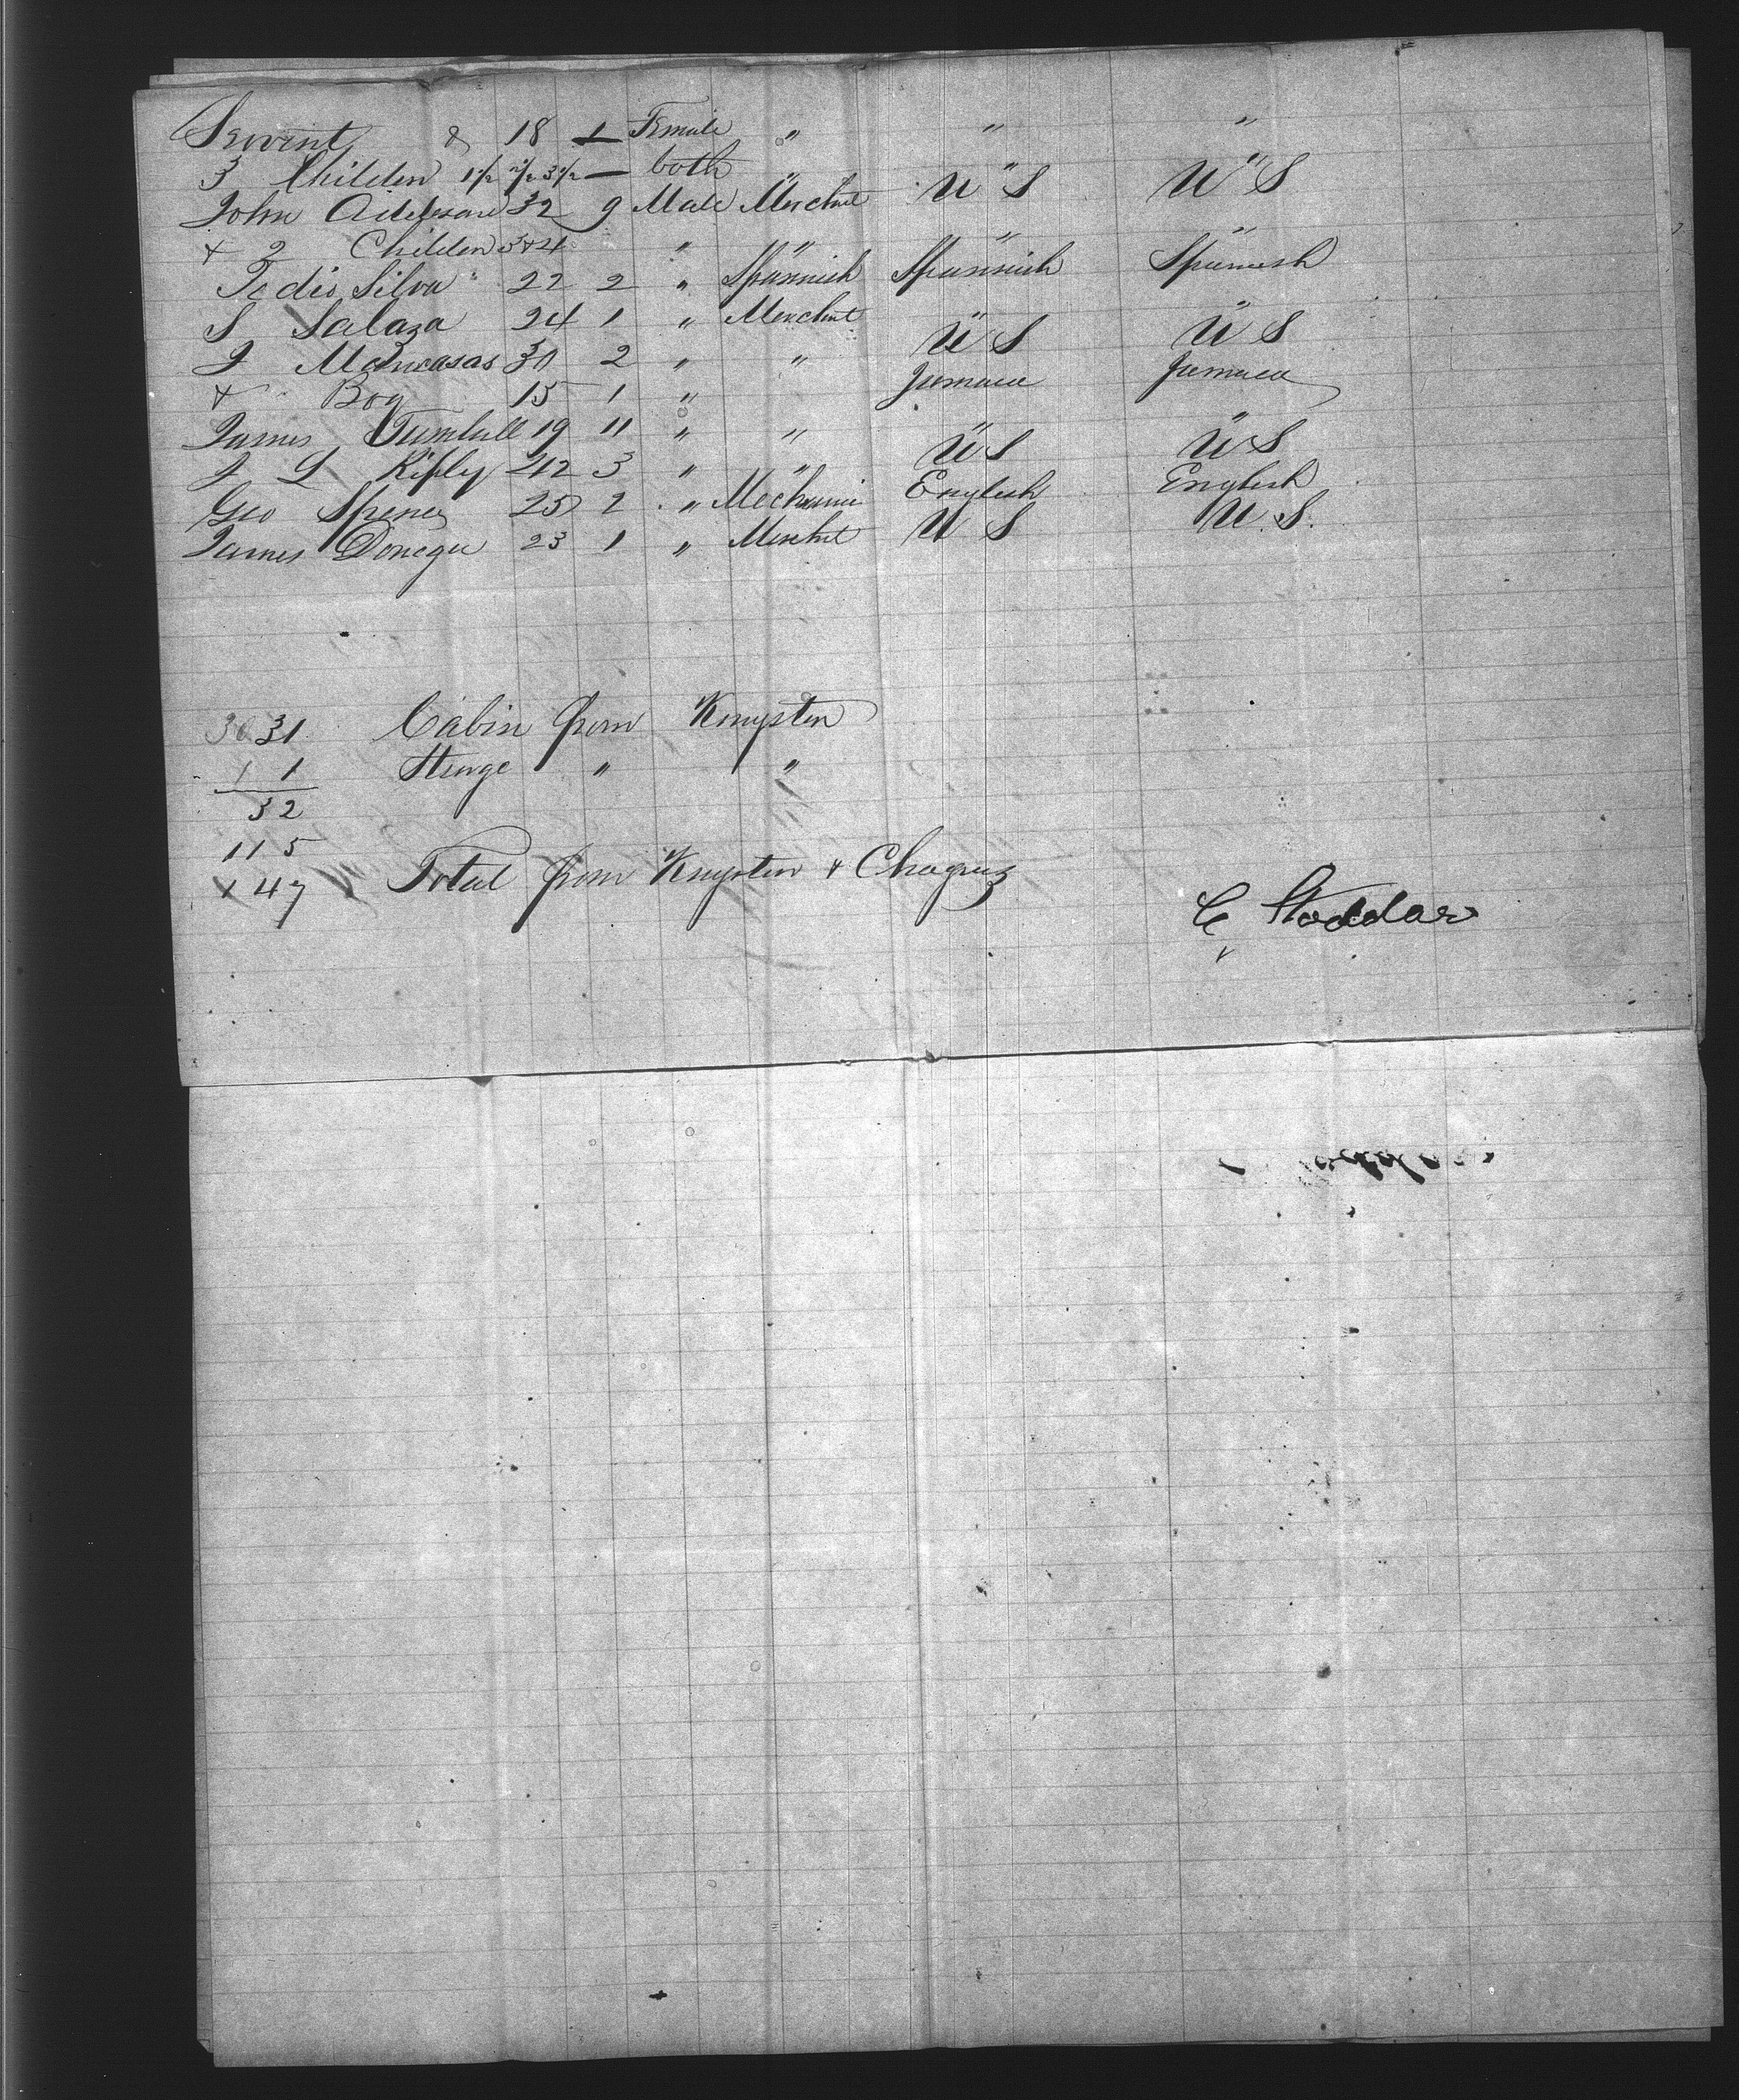 Servent & 18 1 Female " " "
3 Children 1½ 2½ 3½ — both " " "
John Addeson 32 9 Male Merchnt U S U S
+ 2 Childen 3+4 " " " "
Pedio Silva 22 2 " Spannish Spannish Spanish
S Salaza 24 1 " Merchnt " "
J 30 2 " " U S U S
+ Boy 15 1 " Jamaca Jamaca
James Turnbull 19 11 " " " "
J L Ripley 42 3 " " U S U S
Geo Spencer 25 2 " Mechanic English English
James Donegu 23 1 " Merchnt U S U. S.
30 31 Cabin from Kingston
1 1 Sterage " "
32
115
147 Total from Kingston + Chagres
C Stoddar